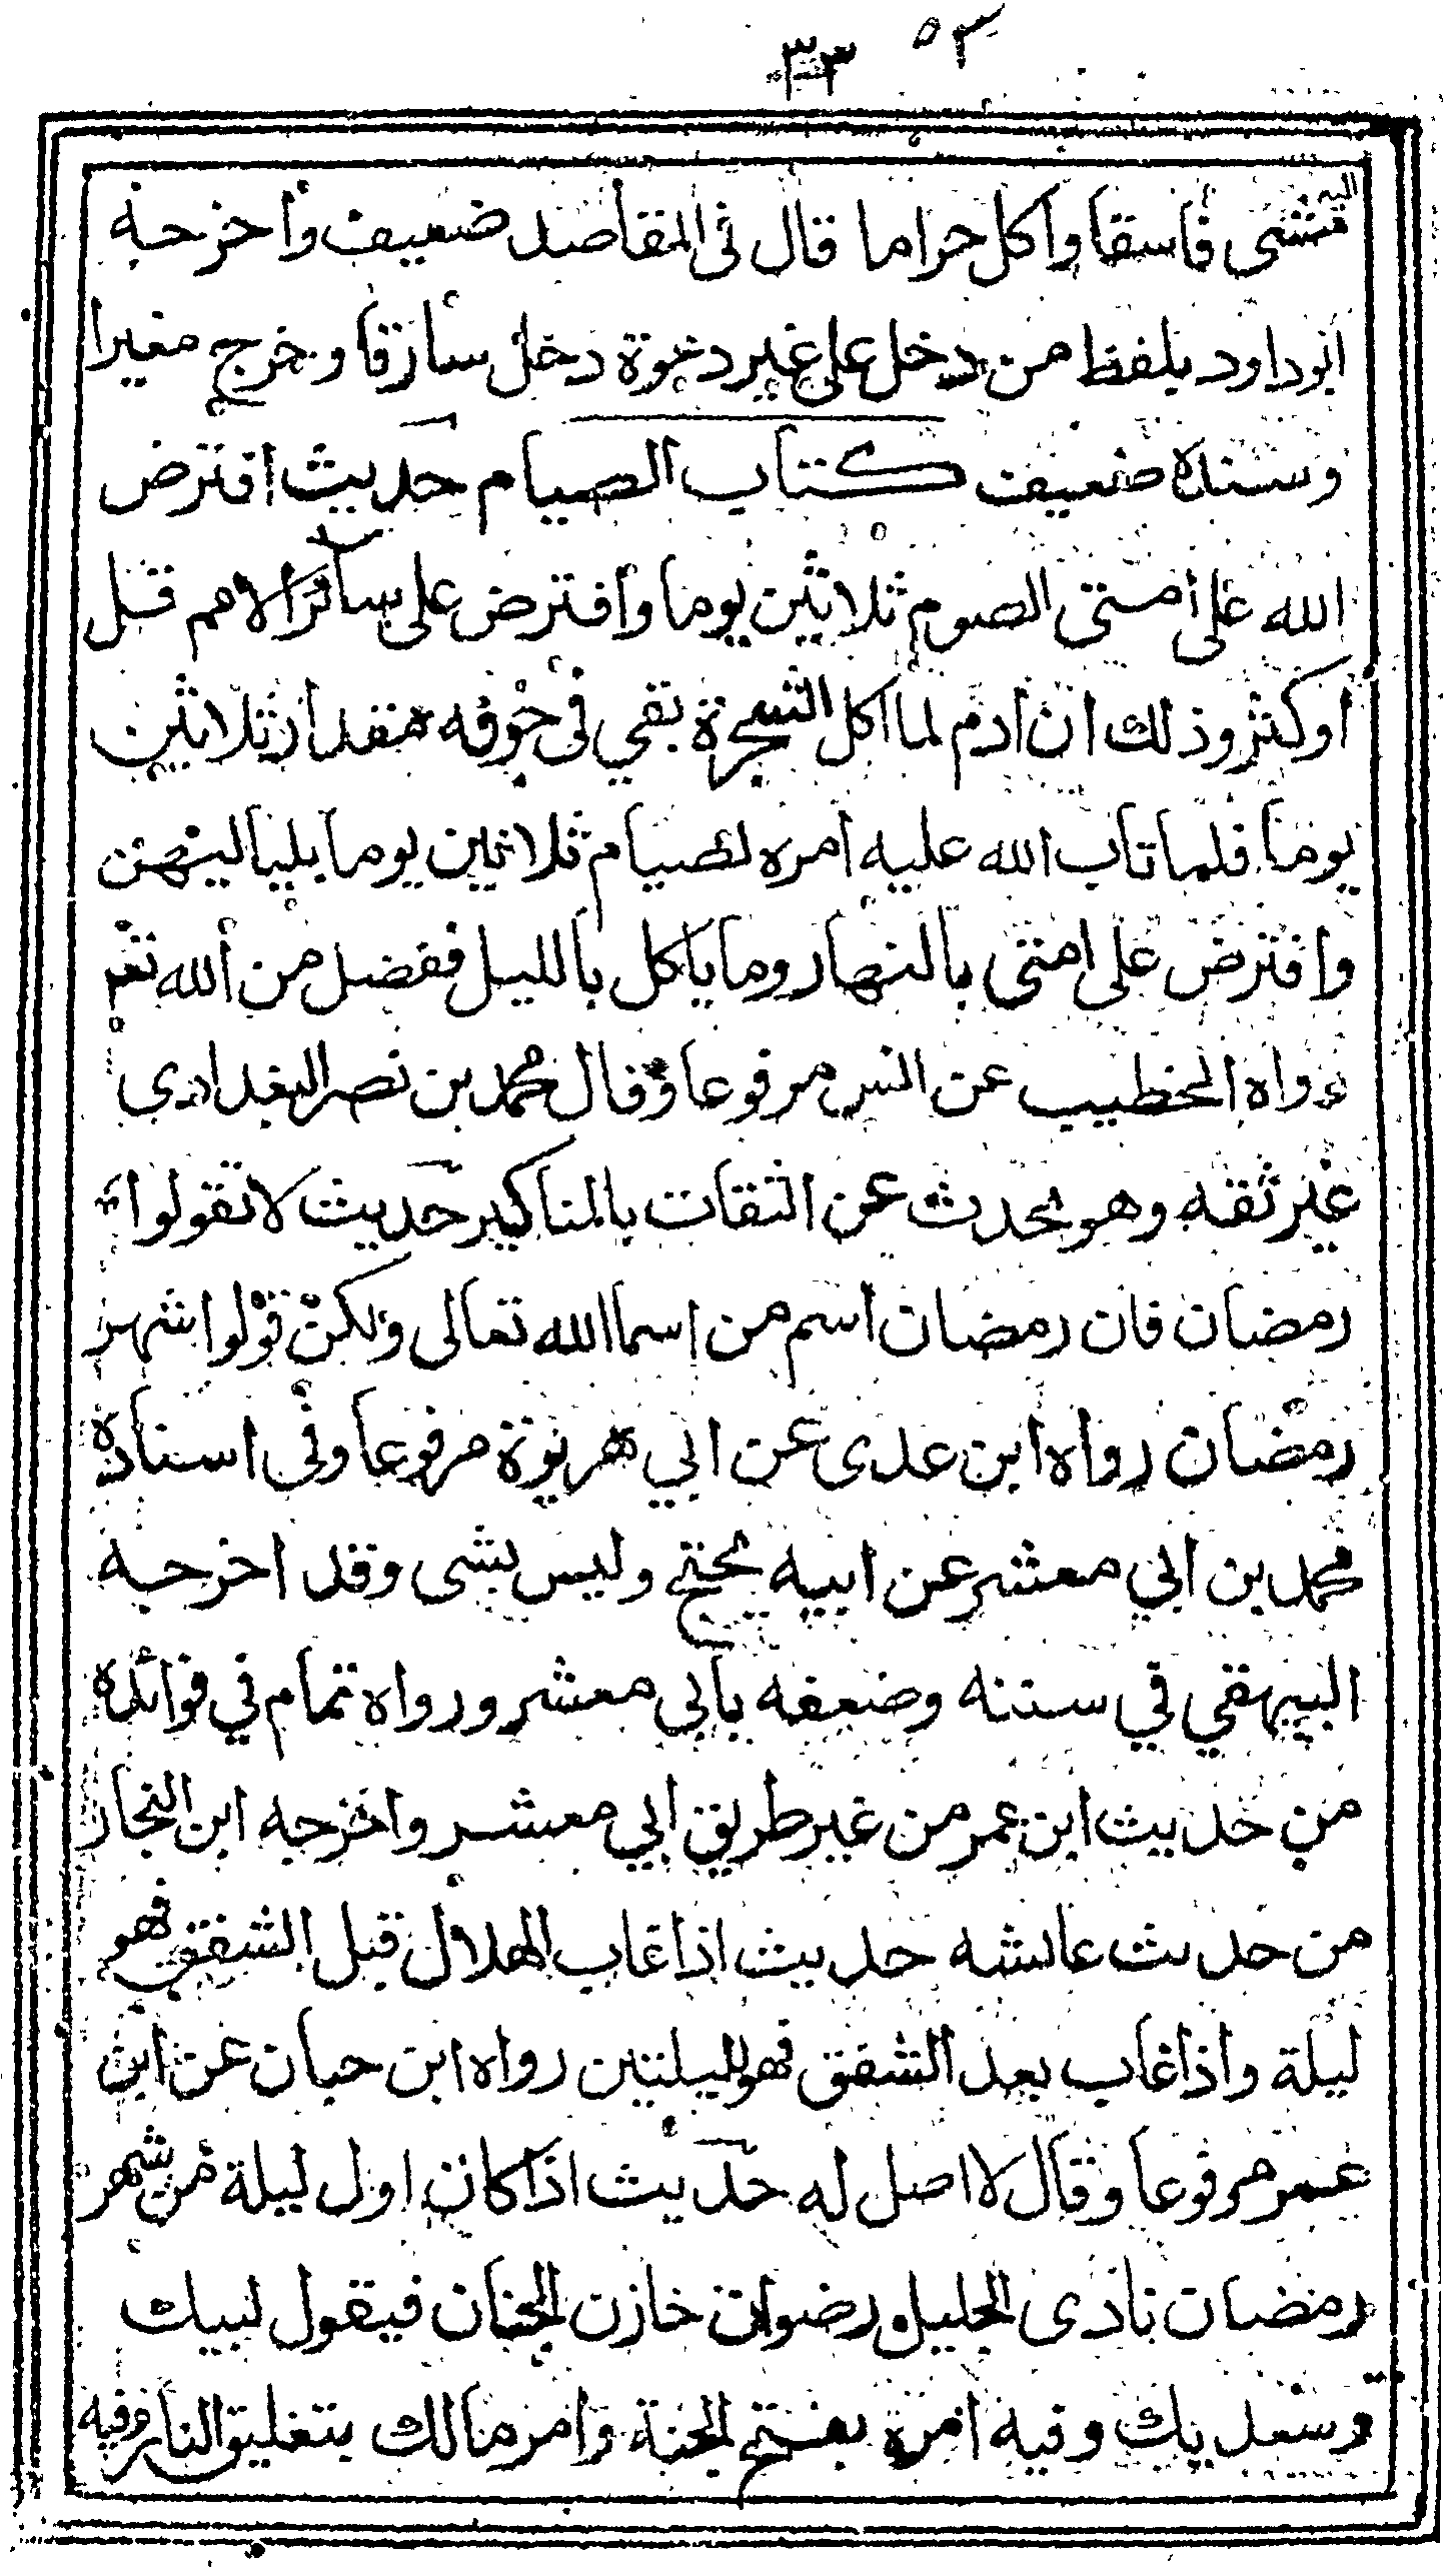 ٣٣ ٥٣
اليه
فمشى فاسقا وأكل حراما قال في المقاصد ضعيف وأخرجه
أبوداود بلفظ من دخل على غير دعوة دخل سارقا وخرج مغيرا
وسنده ضعيف كتاب الصيام حديث افترض
الله على أمتي الصوم ثلاثين يوما وافترض على سائر الامم قل
أو كثر وذلك ان ادم لما اكل الشجرة بقي في جوفه مقدار ثلاثين
يوما فلما تاب الله عليه أمره بصيام ثلاثين يوما بلياليهن
وافترض على امتي بالنهار وما ياكل بالليل ففضل من الله تعـ
رواه الخطيب عن انس مرفوعا وقال محمد بن نصر البغدادي
غير ثقة وهو يحدث عن الثقات بالمناكير حديث لا تقولوا
رمضان فان رمضان اسم من اسما الله تعالى ولكن قولوا شهر
رمضان رواه ابن عدى عن ابي هريرة مرفوعا وفي اسناده
محمد بن ابي معشر عن ابيه نجيح وليس بشى وقد اخرجه
البيهقي في سننه وضعفه بابي معشر ورواه تمام في فوائده
من حديث ابن عمر من غير طريق ابي معشر واخرجه ابن النجار
من حديث عائشه حديث اذا غاب الهلال قبل الشفق فهو
ليلة واذا غاب بعد الشفق فهو لليلتين رواه ابن حبان عن ابن
عمر مرفوعا وقال لا اصل له حديث اذا كان اول ليلة من شهر
رمضان نادى الجليل رضوان خازن الجنان فيقول لبيك
وسعديك وفيه امره بفتح الجنة وامر مالك بتغليق النار وفيه